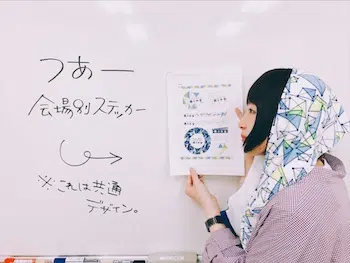 つあー
会場別ステッカー
※これは共通
デザイン。